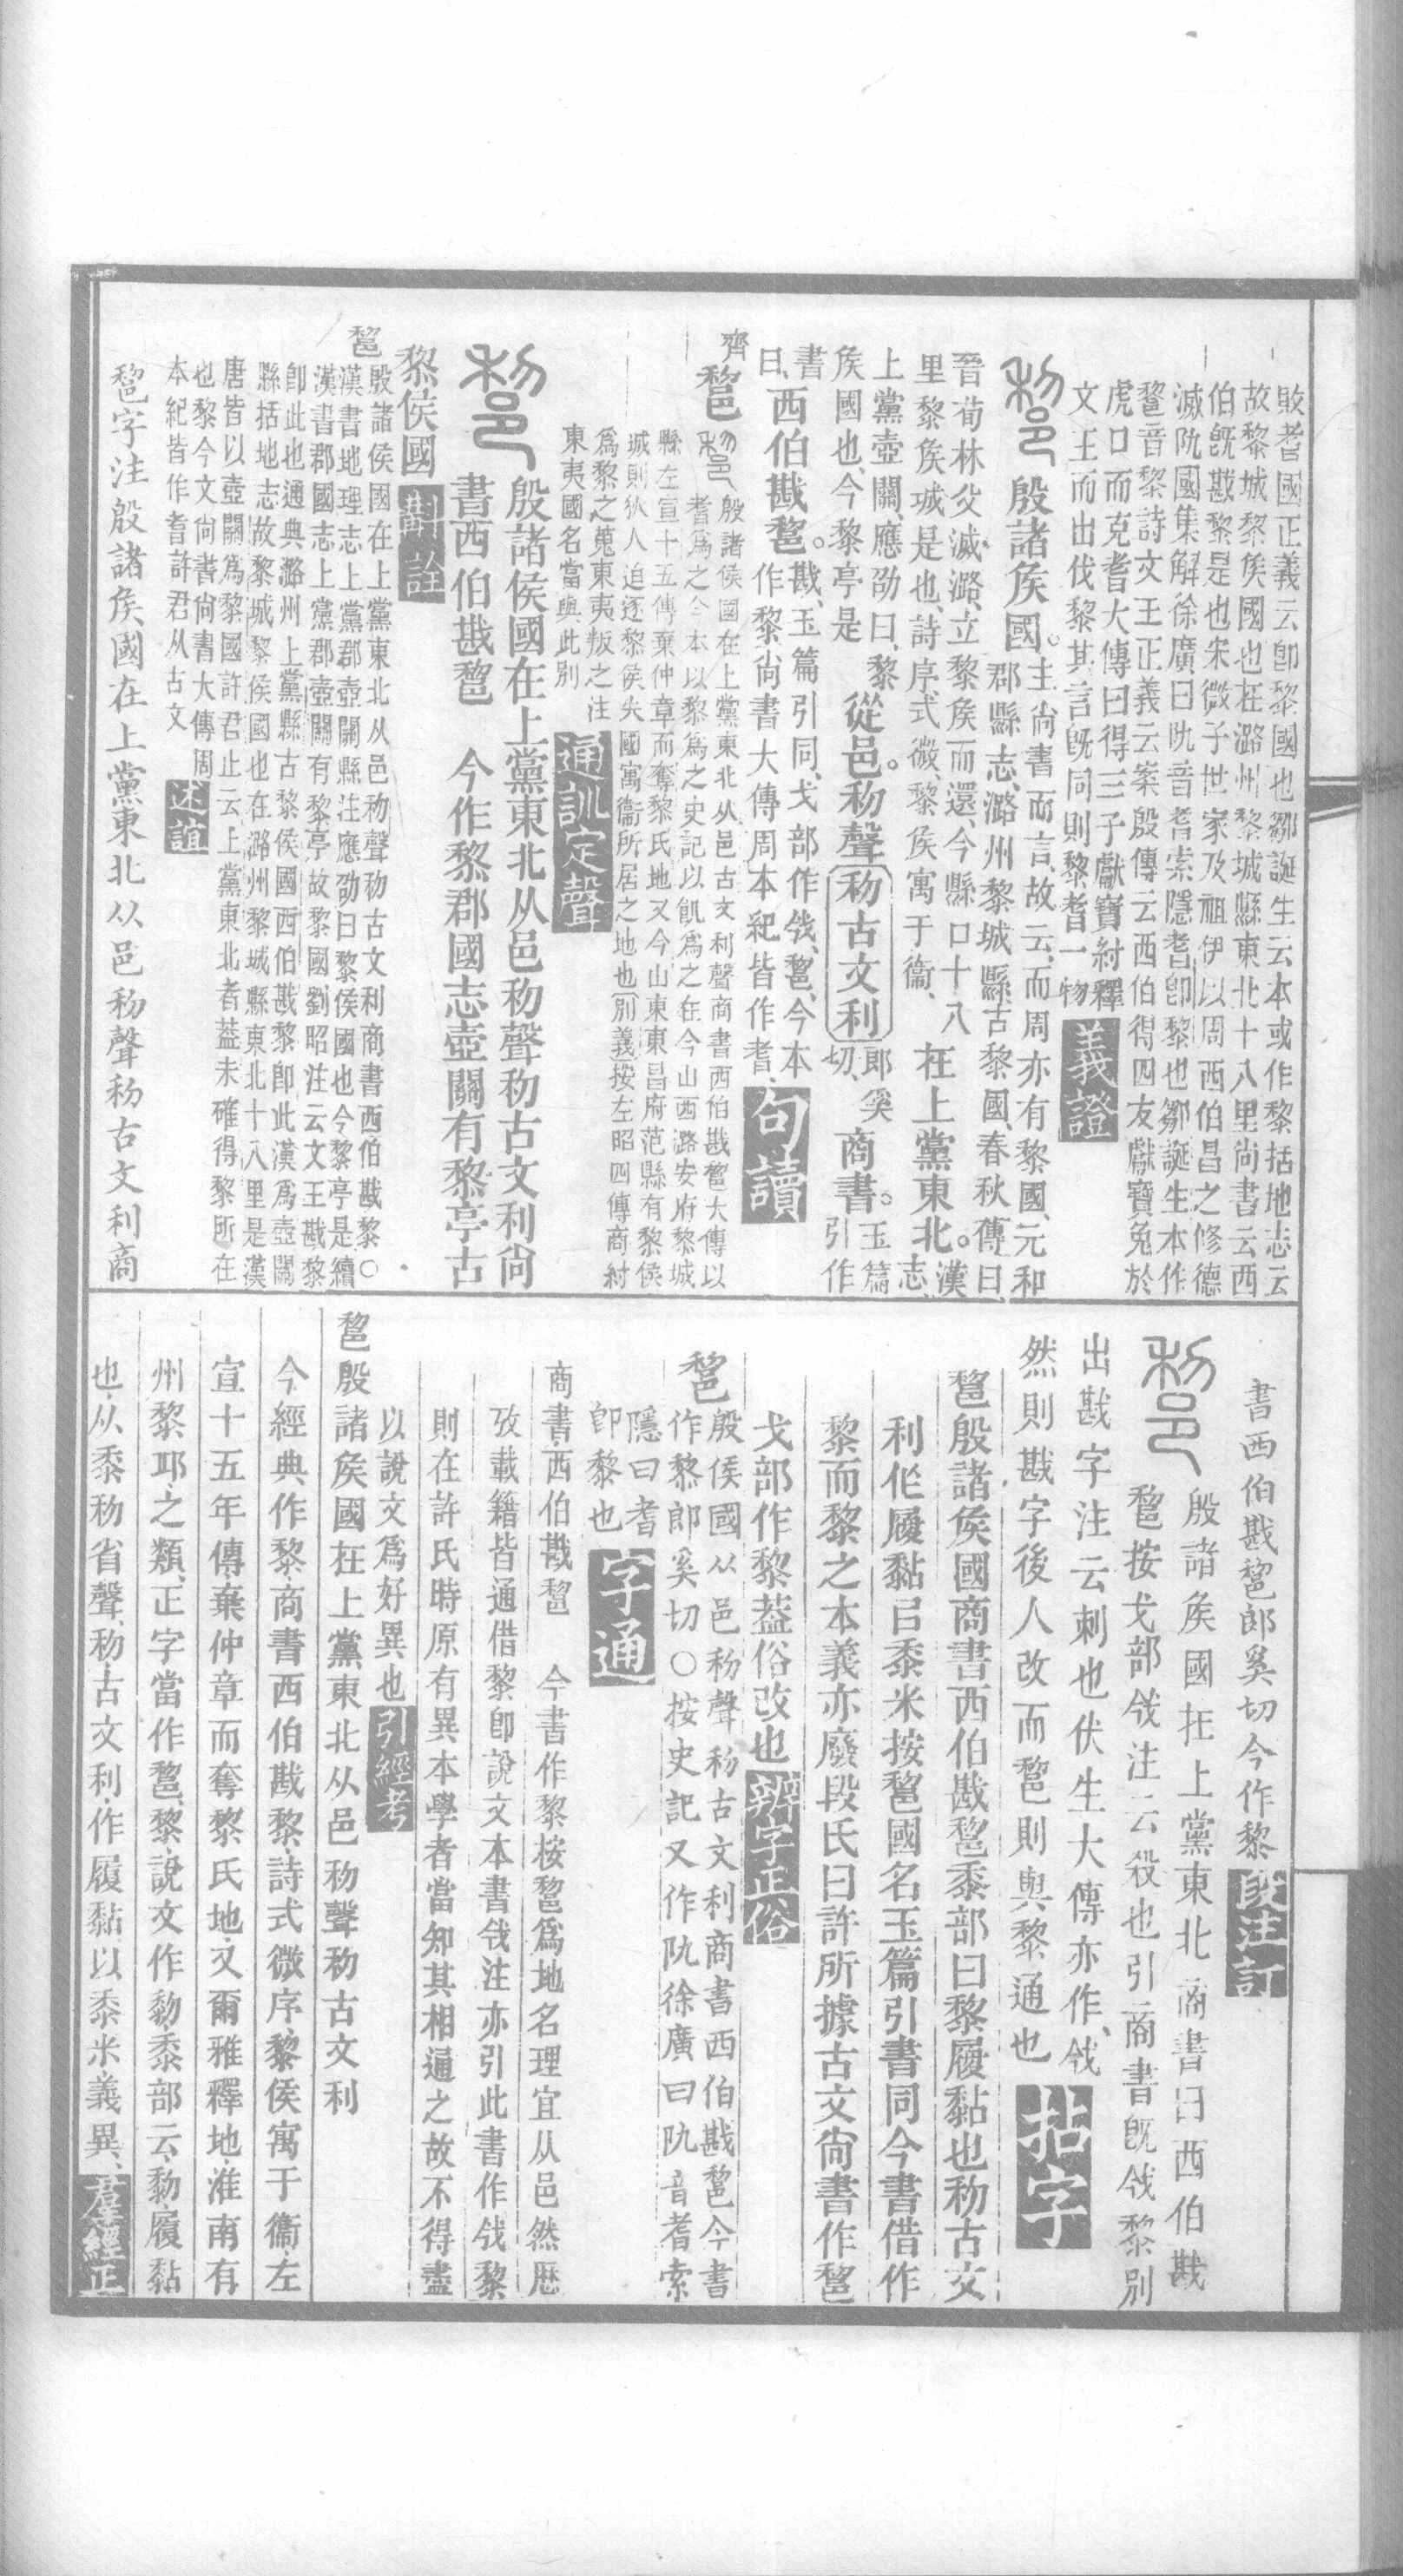 敗耆國正義云卽黎國也鄒誕生云本或作黎括地志云
故黎城黎矦國也在潞州黎城縣東北十八里尚書云西
伯旣戡黎是也宋微子世家及祖伊以周西伯昌之修德
滅阬國集解徐廣曰阬音耆索隱耆卽黎也鄒誕生本作
𨛫音黎詩文王正義云案殷傳云西伯得四友獻寶免於
虎口而克耆大傳曰得三子獻寶紂釋
文王而出伐黎其言旣同則黎耆一物
義證
𨛫殷諸矦國。
主尚書而言、故云、而周亦有黎國、元和
郡縣志、潞州黎城縣、古黎國、春秋傳曰、
晉荀林父滅潞、立黎矦而還、今縣口十八
里黎矦城是也、詩序式微、黎矦寓于衞、
在上黨東北。
漢志、
上黨壺關、應劭曰、黎
矦國也、今黎亭是
從邑。𥝢聲
𥝢古文利
郎奚切、
商書。
玉篇引作
書曰、
西伯戡𨛫。
戡、玉篇引同、戈部作㦰、𨛫、今本
作黎、尚書大傳周本紀皆作耆、
句讀
齊𨛫
𨛫殷諸侯國在上黨東北从邑古文利聲商書西伯戡𨛫大傳以
耆爲之今本以黎爲之史記以飢爲之在今山西潞安府黎城
縣左宣十五傳棄仲章而奪黎氏地又今山東東昌府范縣有黎侯
城則狄人迫逐黎侯失國寓衞所居之地也別義按左昭四傳商紂
爲黎之蒐東夷叛之注
東夷國名當與此別
通訓定聲
𨛫殷諸侯國在上黨東北从邑𥝢聲𥝢古文利尙
書西伯戡𨛫　今作黎郡國志壺關有黎亭古
黎侯國
斠詮
𨛫殷諸侯國在上黨東北从邑𥝢聲𥝢古文利商書西伯戡黎○
漢書地理志上黨郡壺關縣注應劭曰黎侯國也今黎亭是續
漢書郡國志上黨郡壺關有黎亭故黎國劉昭注云文王戡黎
卽此也通典潞州上黨縣古黎侯國西伯戡黎卽此漢爲壺關
縣括地志故黎城黎侯國也在潞州黎城縣東北十八里是漢
唐皆以壺關爲黎國許君止云上黨東北者葢未確得黎所在
也黎今文尙書尙書大傳周
本紀皆作耆許君从古文
述誼
𨛫字注殷諸矦國在上黨東北从邑𥝢聲𥝢古文利商
書西伯戡𨛫郎奚切今作黎
段注訂
𨛫殷諸矦國在上黨東北商書曰西伯戡
𨛫按戈部㦰注云殺也引商書旣㦰黎別
出戡字注云刺也伏生大傳亦作、㦰
然則戡字後人改而𨛫則與黎通也
拈字
𨛫殷諸矦國商書西伯戡𨛫黍部曰黎履黏也𥝢古文
利作履黏㠯黍米按𨛫國名玉篇引書同今書借作
黎而黎之本義亦廢段氏曰許所據古文尙書作𨛫
戈部作黎葢俗改也
辨字正俗
𨛫殷侯國从邑𥝢聲𥝢古文利商書西伯戡𨛫今書
作黎郎奚切○按史記又作阬徐廣曰阬音耆索
隱曰耆
卽黎也
字通
商書西伯戡𨛫　今書作黎按𨛫爲地名理宜从邑然歷
攷載籍皆通借黎卽說文本書㦰注亦引此書作㦰黎
則在許氏時原有異本學者當知其相通之故不得盡
以說文爲好異也
引經考
𨛫殷諸矦國在上黨東北从邑𥝢聲𥝢古文利
今經典作黎商書西伯戡黎詩式微序黎侯寓于衞左
宣十五年傳棄仲章而奪黎氏地又爾雅釋地淮南有
州黎邱之類正字當作𨛫黎說文作䵩黍部云䵩履黏
也从黍𥝢省聲𥝢古文利作履黏以黍米義異
羣經正